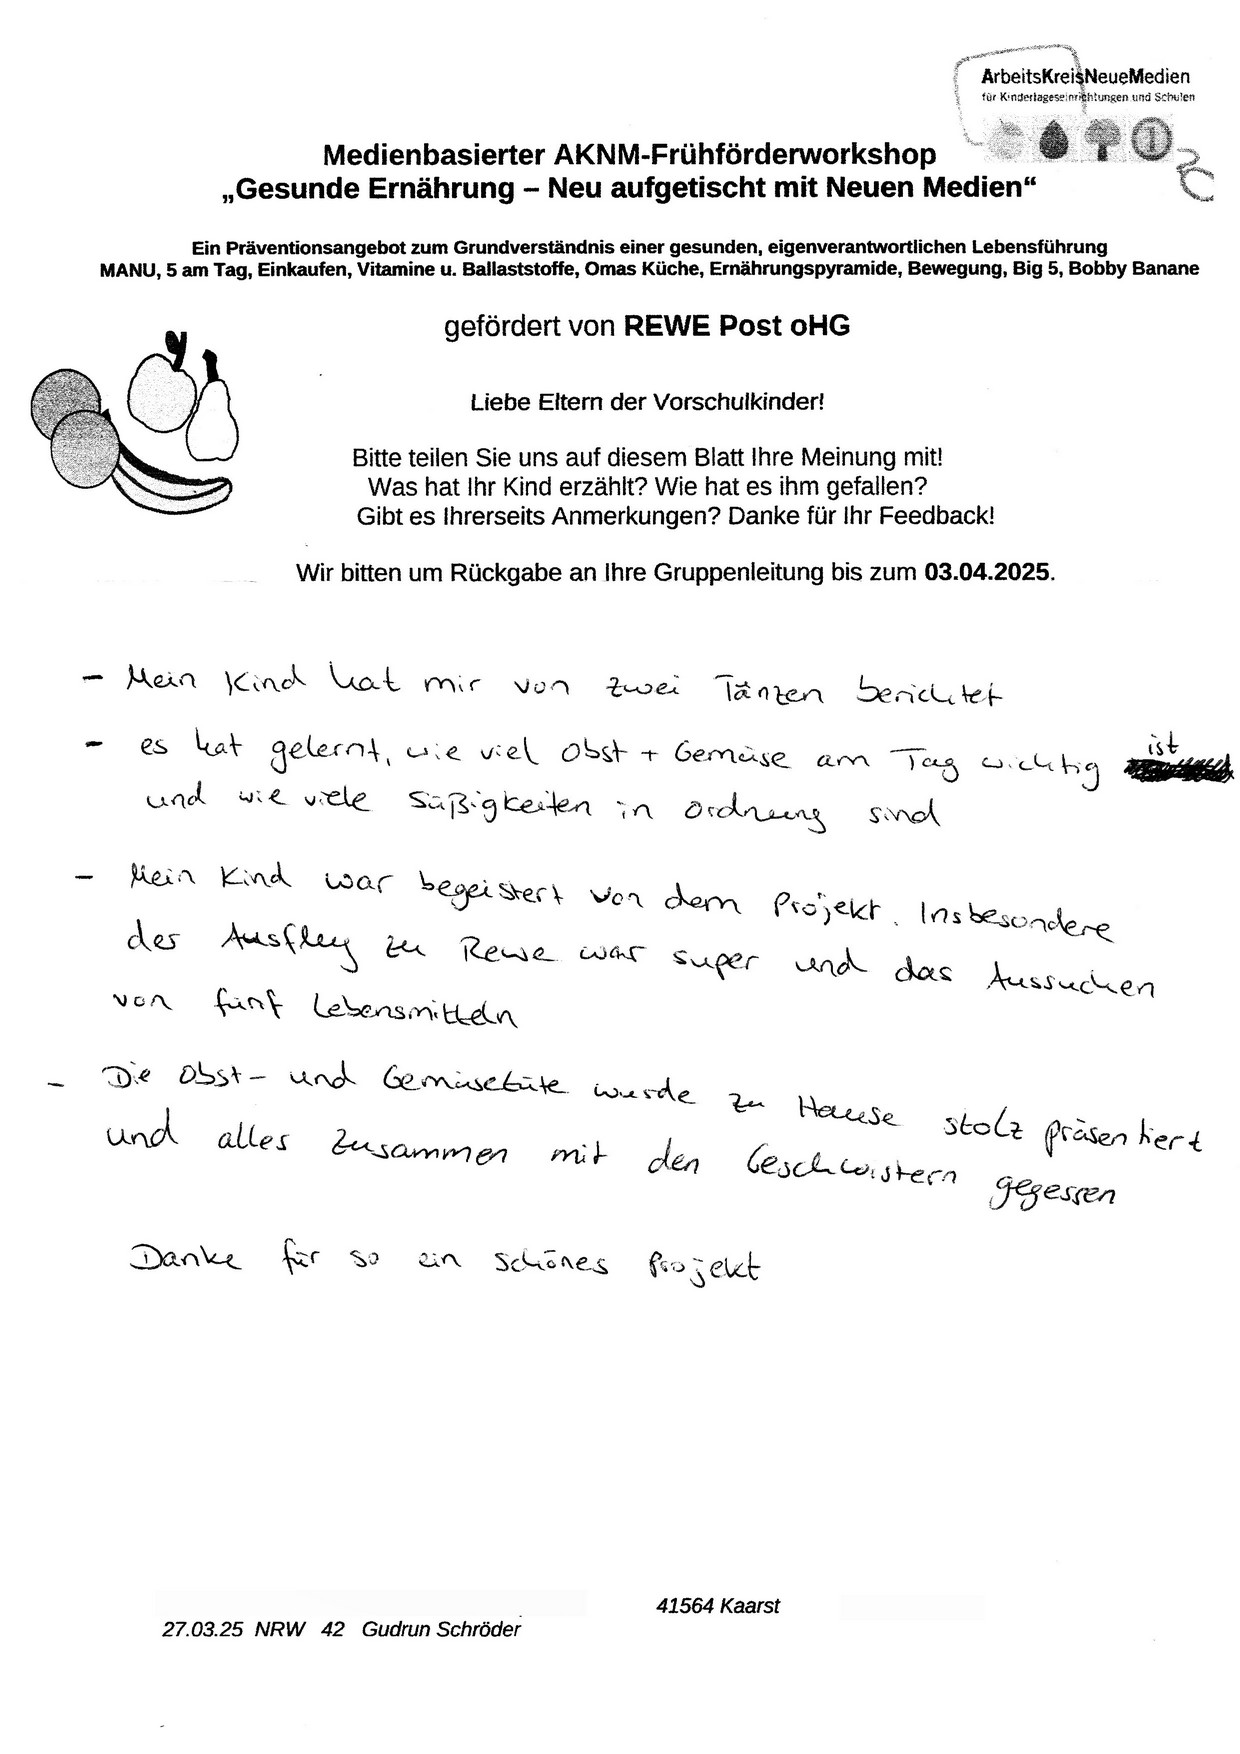 ArbeitsKreisNeueMedien
für Kindertageseinrichtungen und Schulen
Medienbasierter AKNM-Frühförderworkshop
„Gesunde Ernährung – Neu aufgetischt mit Neuen Medien“
Ein Präventionsangebot zum Grundverständnis einer gesunden, eigenverantwortlichen Lebensführung
MANU, 5 am Tag, Einkaufen, Vitamine u. Ballaststoffe, Omas Küche, Ernährungspyramide, Bewegung, Big 5, Bobby Banane
gefördert von REWE Post oHG
Liebe Eltern der Vorschulkinder!
Bitte teilen Sie uns auf diesem Blatt Ihre Meinung mit!
Was hat Ihr Kind erzählt? Wie hat es ihm gefallen?
Gibt es Ihrerseits Anmerkungen? Danke für Ihr Feedback!
Wir bitten um Rückgabe an Ihre Gruppenleitung bis zum 03.04.2025.
- Mein Kind hat mir von zwei Tänzen berichtet
- es hat gelernt, wie viel Obst + Gemüse am Tag wichtig ist
und wie viele Süßigkeiten in Ordnung sind
- Mein Kind war begeistert von dem Projekt. Insbesondere
der Ausflug zu Rewe war super und das Aussuchen
von fünf Lebensmitteln
- Die Obst- und Gemüsetüte wurde zu Hause stolz präsentiert
und alles zusammen mit den Geschwistern gegessen
Danke für so ein schönes Projekt
41564 Kaarst
27.03.25 NRW 42 Gudrun Schröder